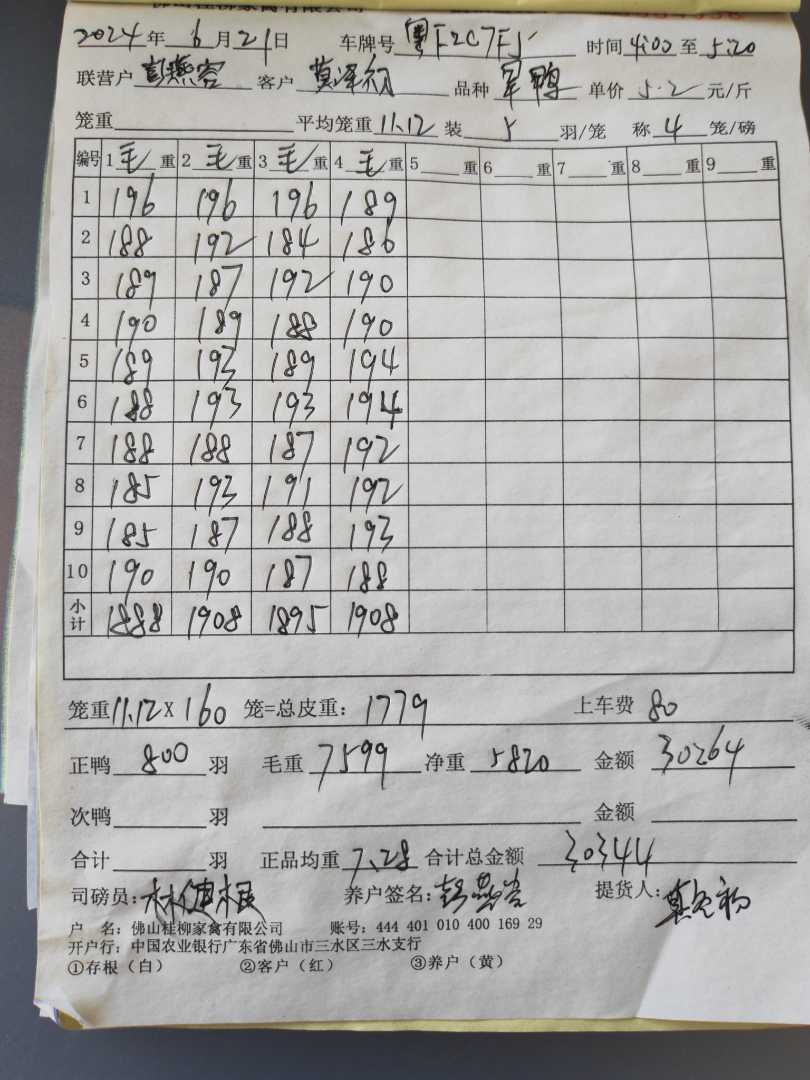 佛山桂柳家禽有限公司
2024年6月21日 车牌号 粤F2C7F5 时间 4:00 至 5:20
联营户 彭燕容 客户 莫泽初 品种 军鸭 单价 5.2 元/斤
笼重 平均笼重 11.12 装 5 羽/笼 称 4 笼/磅
编号 1 毛 重 2 毛 重 3 毛 重 4 毛 重 5 重 6 重 7 重 8 重 9 重
1 196 196 196 189
2 188 192 184 186
3 189 187 192 190
4 190 189 188 190
5 189 193 189 194
6 188 193 193 194
7 188 188 187 192
8 185 193 191 192
9 185 187 188 193
10 190 190 187 188
小计 1888 1908 1895 1908
笼重 11.12 X 160 笼=总皮重: 1779 上车费 80
正鸭 800 羽 毛重 7599 净重 5820 金额 30264
次鸭 羽 金额
合计 羽 正品均重 7.28 合计总金额 30344
司磅员: 林健根 养户签名: 彭燕容 提货人: 莫泽初
户 名: 佛山桂柳家禽有限公司 账号: 444 401 010 400 169 29
开户行: 中国农业银行广东省佛山市三水区三水支行
①存根（白） ②客户（红） ③养户（黄）